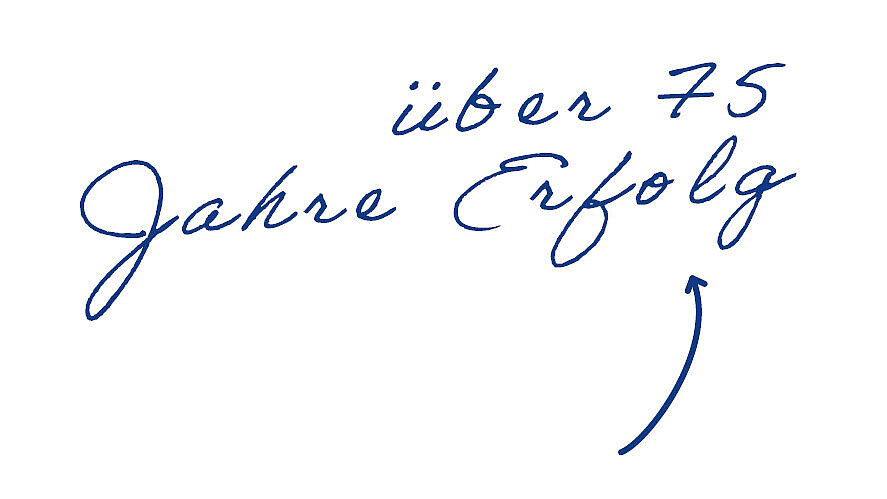 über 75
Jahre Erfolg